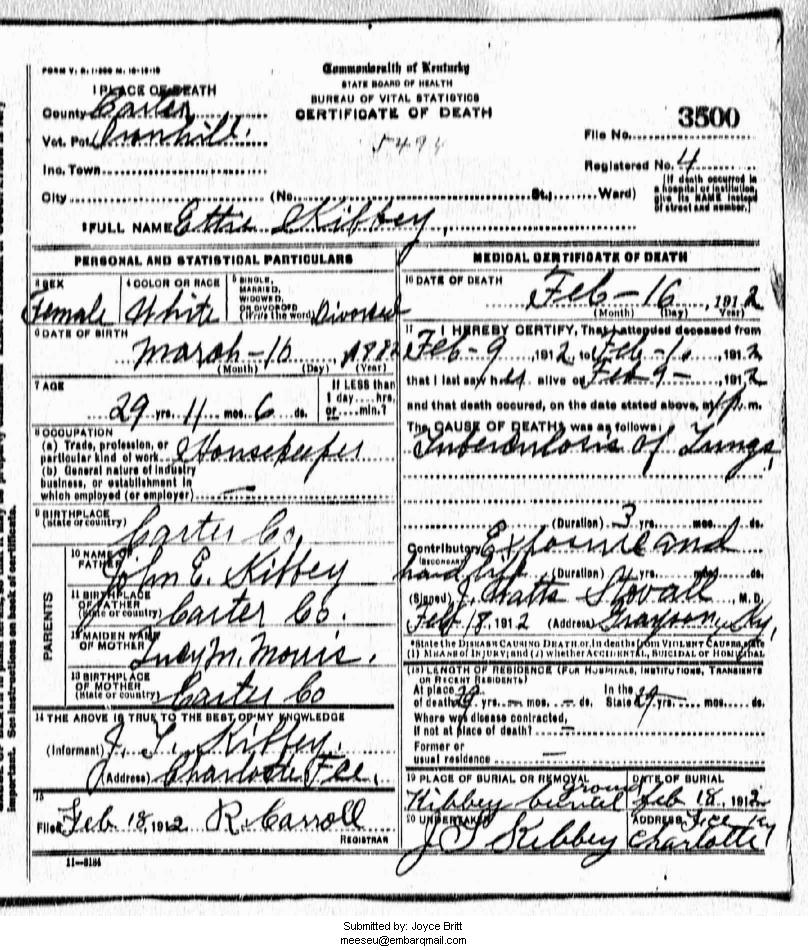 FORM V. S. 1-200 M. 10-10-10
Commonwealth of Kentucky
STATE BOARD OF HEALTH
BUREAU OF VITAL STATISTICS
CERTIFICATE OF DEATH
1 PLACE OF DEATH
County Carter
Vot. Pct. Ironhill.
Inc. Town
City (No. St.; Ward)
3500
File No.
Registered No. 4
[If death occurred in
a hospital or institution,
give its NAME instead
of street and number.]
2 FULL NAME Ettie Kibbey
PERSONAL AND STATISTICAL PARTICULARS
3 SEX
Female
4 COLOR OR RACE
White
5 SINGLE,
MARRIED,
WIDOWED,
OR DIVORCED
(Write the word) Divorced
6 DATE OF BIRTH
March - 10 1882
(Month) (Day) (Year)
7 AGE
29 yrs. 11 mos. 6 ds.
If LESS than
1 day....hrs.
or....min.?
8 OCCUPATION
(a) Trade, profession, or
particular kind of work Housekeeper
(b) General nature of industry
business, or establishment in
which employed (or employer) —
9 BIRTHPLACE
(State or country) Carter Co.
PARENTS
10 NAME OF
FATHER John E. Kibbey
11 BIRTHPLACE
OF FATHER
(State or country) Carter Co.
12 MAIDEN NAME
OF MOTHER Lucy M. Morris.
13 BIRTHPLACE
OF MOTHER
(State or country) Carter Co
14 THE ABOVE IS TRUE TO THE BEST OF MY KNOWLEDGE
(Informant) J. T. Kibbey.
(Address) Charlotte Fce.
15
Filed Feb 18, 1912 R Carroll
REGISTRAR
11—3184
MEDICAL CERTIFICATE OF DEATH
16 DATE OF DEATH
Feb - 16, 1912
(Month) (Day) Year
17 I HEREBY CERTIFY, That I attended deceased from
Feb - 9, 1912 to Feb - , 1912
that I last saw her alive on Feb 9 -, 1912
and that death occured, on the date stated above, at m.
The CAUSE OF DEATH was as follows:
Tuberculosis of Lungs
(Duration) 3 yrs. mos. ds.
Contributory Exposure and
(SECONDARY)
hard life (Duration) yrs. mos. ds.
(Signed) J. Watts Stovall M. D.
Feb 18, 1912 (Address) Grayson, Ky.
*State the DISEASE CAUSING DEATH, or, in deaths from VIOLENT CAUSES, state
(1) MEANS OF INJURY; and (2) whether ACCIDENTAL, SUICIDAL or HOMICIDAL
(18) LENGTH OF RESIDENCE (FOR HOSPITALS, INSTITUTIONS, TRANSIENTS
OR RECENT RESIDENTS)
At place
of death 29 yrs. — mos. — ds.
In the
State 29 yrs. mos. ds.
Where was disease contracted,
if not at place of death? —
Former or
usual residence —
19 PLACE OF BURIAL OR REMOVAL
Kibbey burial ground
DATE OF BURIAL
Feb 18, 1912
20 UNDERTAKER
J T Kibbey
ADDRESS
Charlotte
Important. See instructions on back of certificate.
Submitted by: Joyce Britt
meeseu@embarqmail.com